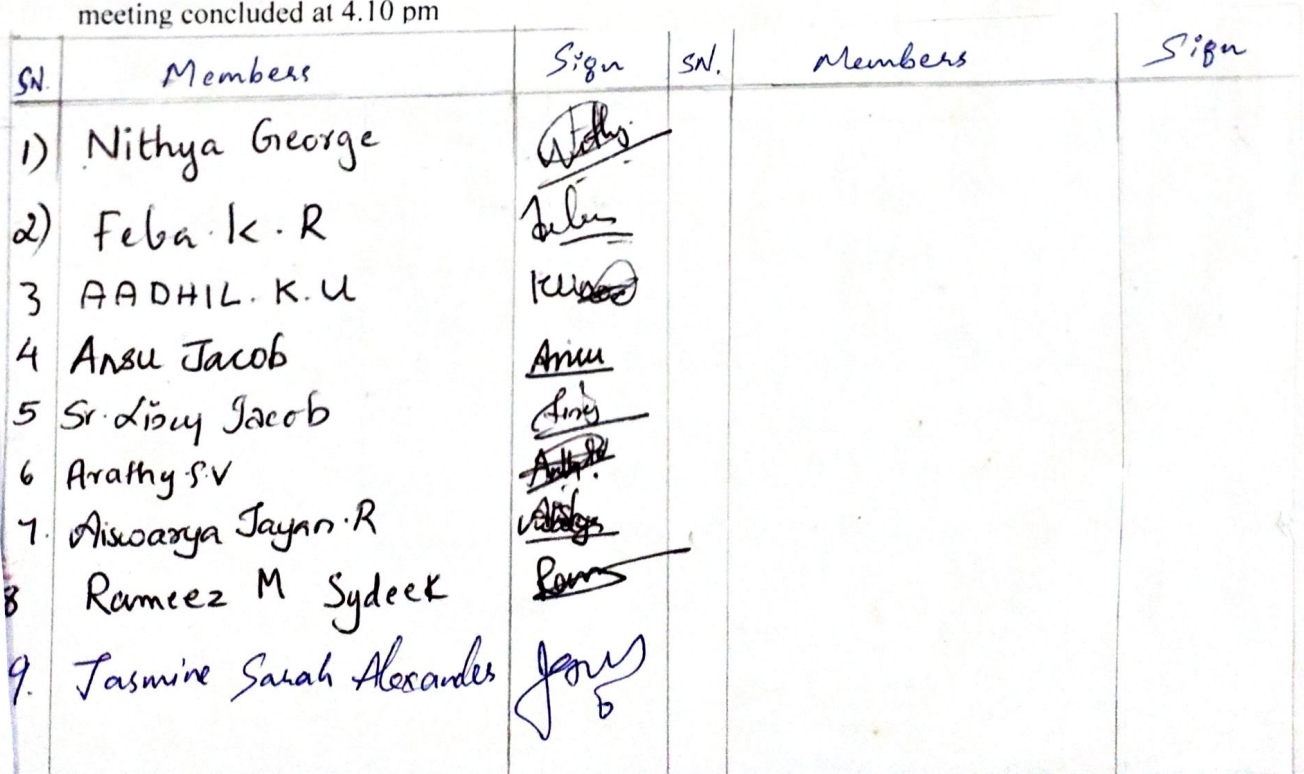 meeting concluded at 4.10 pm
SN. Members Sign SN. Members Sign
1) Nithya George
2) Feba. K. R
3 AADHIL. K. U
4 Ansu Jacob Ansu
5 Sr. Lisy Jacob
6 Arathy S.V
7. Aiswarya Jayan. R
8 Rameez M Sydeek
9. Jasmine Sarah Alexander